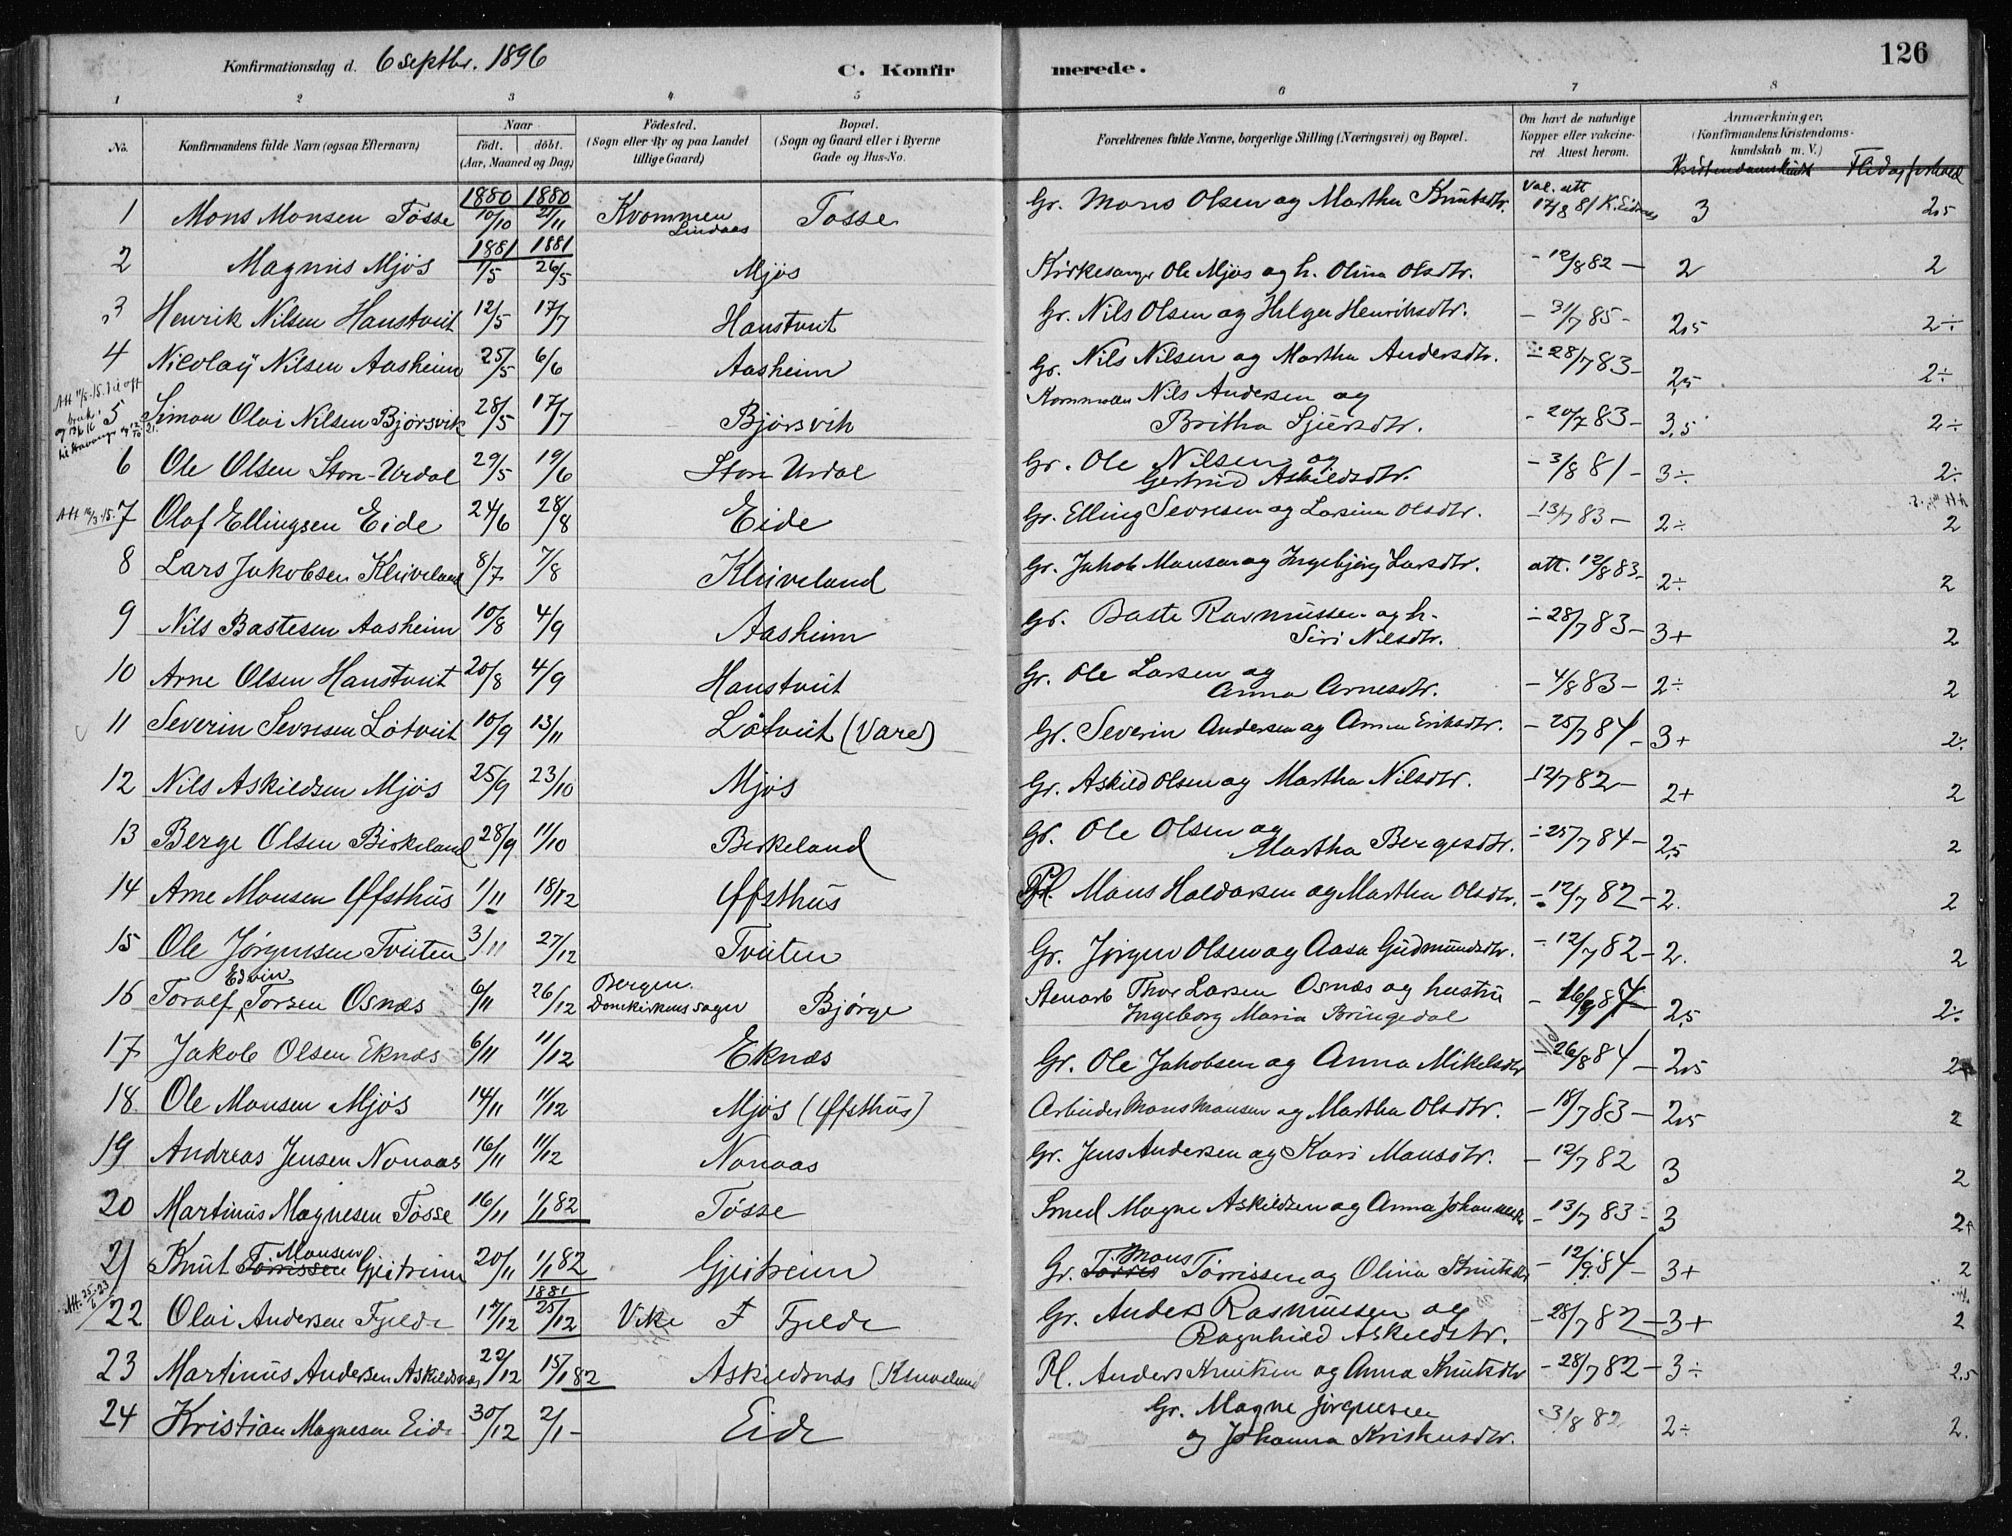 126
Konfirmationsdag d. 6 septbr. 1896
C. Konfirmerede.
1 2 3 4 5 6 7 8
No. Konfirmandens fulde Navn (ogsaa Efternavn) Naar födt. döbt. (Aar, Maaned og Dag) Födested. (Sogn eller By og paa Landet tillige Gaard) Bopæl. (Sogn og Gaard eller i Byerne Gade og Hus-No. Forældrenes fulde Navne, borgerlige Stilling (Næringsvei) og Bopæl. Om havt de naturlige Kopper eller vakcineret Attest herom. Anmærkninger. (Konfirmandens Kristendomskundskab m. V.)
1 Mons Monsen Tösse 1880 10/10 1880 21/11 Kvommen Lindaas Tosse Gr. Mons Olsen og Martha Knutsdtr. Vac. att 17/8 81 3 2,5
2 Magnus Mjös 1881 1/5 1881 26/5 Mjös Kirkesanger Ole Mjös og h. Olina Olsdtr. - 12/8 82 - 2 2
3 Henrik Nilsen Hanstveit 12/5 17/7 Hanstveit Gr. Nils Olsen og Helga Henriksdtr. - 31/7 85 - 2,5 2÷
4 Nicolay Nilsen Aasheim 25/5 6/6 Aasheim Gr. Nils Nilsen og Martha Andersdtr. - 28/7 83 - 2,5 2÷
5 Simon Olai Nilsen Bjørsvik 28/5 17/7 Bjørsvik Nils Andersen og Britha Sjursdtr. - 20/7 83 - 3,5 2÷
6 Ole Olsen Stor-Urdal 29/5 19/6 Stor Urdal Gr. Ole Nilsen og Gertrud Askildsdtr. - 3/8 81 - 3÷ 2÷
7 Olaf Ellingsen Eide 24/6 28/8 Eide Gr. Elling Sevresen og Larsina Olsdtr. - 13/7 83 - 2÷ 2
8 Lars Jakobsen Kleiveland 8/7 7/8 Kleiveland Gr. Jakob Monsen og Ingebjørg Larsdtr. att. 12/8 83 - 2÷ 2
9 Nils Bastesen Aasheim 10/8 4/9 Aasheim Gr. Baste Rasmussen og h. Siri Nilsdtr. - 28/7 83 - 3+ 2
10 Arne Olsen Hanstveit 20/8 4/9 Hanstveit Gr. Ole Larsen og Anna Arnesdtr. - 4/8 83 - 2÷ 2
11 Severin Sevresen Lötveit 10/9 13/11 Lötveit (Vare) Gr. Severin Andersen og Anna Eriksdtr. - 25/7 84 - 3+ 2÷
12 Nils Askildsen Mjös 25/9 23/10 Mjös Gr. Askild Olsen og Martha Nilsdtr. - 12/7 82 - 2+ 2
13 Berge Olsen Birkeland 28/9 11/10 Birkeland Gr. Ole Olsen og Martha Bergesdtr. - 25/7 84 - 2,5 2
14 Arne Monsen Øfsthus 1/11 18/12 Øfsthus Pl. Mons Haldorsen og Martha Olsdtr. - 12/7 82 - 2. 2
15 Ole Jørgensen Tveiten 3/11 27/12 Tveiten Gr. Jørgen Olsen og Aasa Gudmundsdtr. - 12/7 82 - 2. 2
16 Toralf Edvin Torsen Osnæs 6/11 26/12 Bergen. Domkirkens sogn Bjørge Stenarb Thor Larsen Osnæs og hustru Ingeborg Maria Bringedal 2,5 2÷
17 Jakob Olsen Eknæs 6/11 11/12 Eknæs Gr. Ole Jakobsen og Anna Mikelsdtr - 26/8 84 - 2,5 2
18. Ole Monsen Mjös 14/11 11/12 Mjös (Øfsthus) Arbeider Mons Monsen og Martha Olsdtr. - 18/7 83 - 2,5 2
19 Andreas Jensen Nonaas 16/11 11/12 Nonaas Gr. Jens Andersen og Kari Monsdtr. - 12/7 82 3 2
20 Martinus Magnesen Tösse 16/11 1/1 82 Tösse Smed Magne Askildsen og Anna - 13/7 83 - 3 2+
21 Knut Torrissen Monsen Gjeitreim 20/11 1/1 82 Gjeitreim Gr. Torris Mons Torrissen og Olina Knutsdtr - 12/9 84 - 3+ 2
22 Olai Andersen Fjelde 17/12 1881 25/12 Vike Fjelde Gr. Anders Rasmussen og Ragnhild Askildsdtr. - 28/7 82 - 3+ 2
23 Martinus Andersen Askildsnæs 22/12 15/1 82 Askildsnæs (Kleiveland Pl. Anders Knutsen og Anna Knutsdtr - 28/7 82 - 3÷ 2,5
24 Kristian Magnesen Eide 30/12 2/1 - Eide Gr. Magne Jørgensen og Johanna - 31/8 82 2÷ 2.